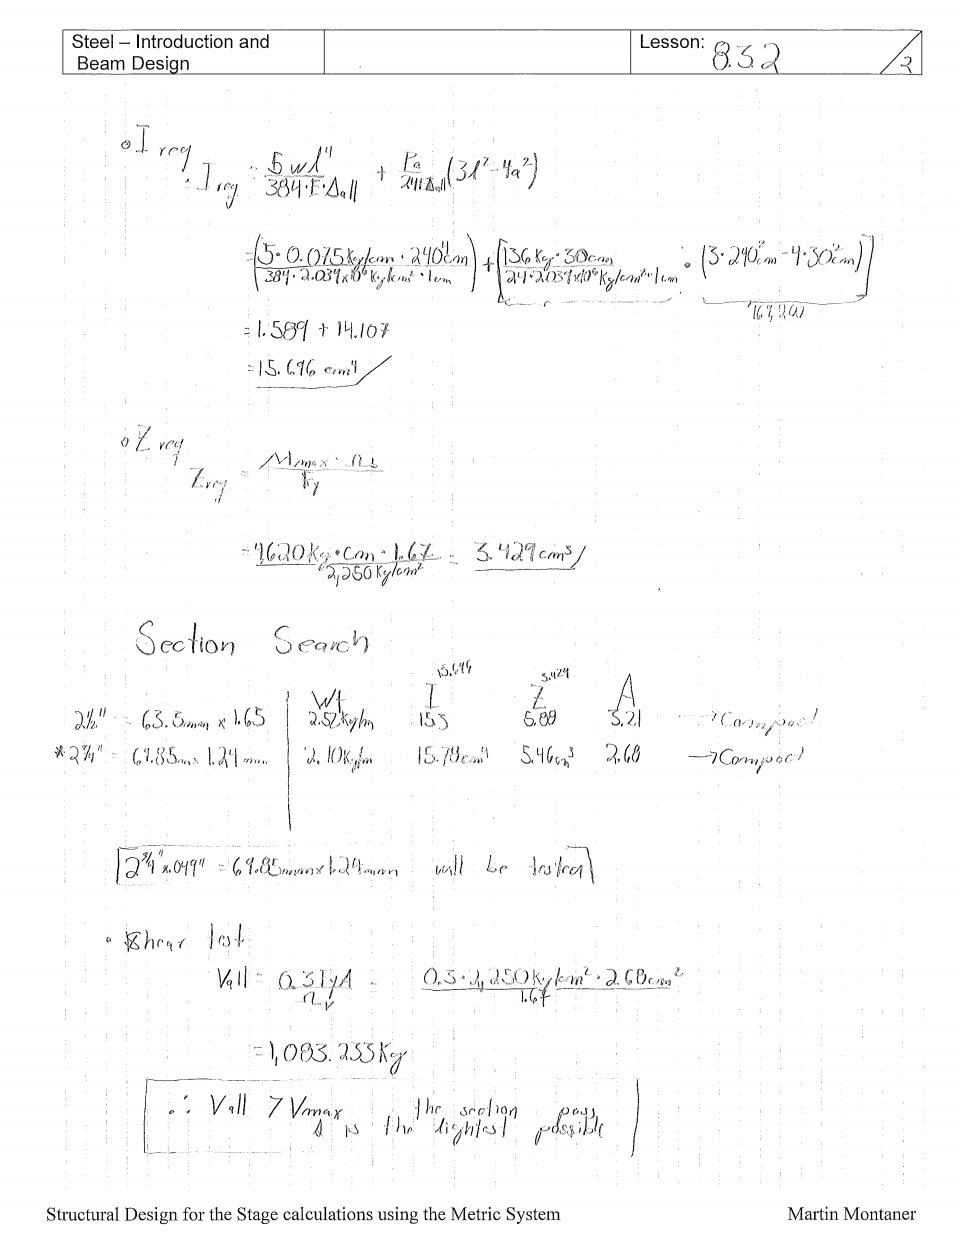 Steel – Introduction and
Beam Design
Lesson: 8.3.2
/2
• I req
I req = 5wl⁴ / 384·E·Δall + Pa / 24EΔall (3l² - 4a²)
= (5·0.075Kg/cm · 240⁴cm / 384·2.039x10⁶Kg/cm²·1cm) + [136Kg·30cm / 24·2.039x10⁶Kg/cm²·1cm · (3·240²cm - 4·30²cm)]
= 1.589 + 14.107
= 15.696 cm⁴
• Z req
Zreq = Mmax · Ωb / Fy
= 4,620Kg·cm · 1.67 / 2,250Kg/cm² = 3.429cm³
Section Search
15.696 3.429
Wt I Z A
2½" = 63.5mm x 1.65 2.52Kg/m 153 6.89 3.21 → Compact
*2¾" = 69.85mm x 1.24mm 2.10Kg/m 15.78cm⁴ 5.46cm³ 2.68 → Compact
2¾" x .049" = 69.85mm x 1.24mm will be tested
• Shear test
Vall = 0.3FyA / Ωv = 0.3·2,250Kg/cm²·2.68cm² / 1.67
= 1,083.233Kg
∴ Vall > Vmax, the section pass
& is the lightest possible
Structural Design for the Stage calculations using the Metric System
Martin Montaner